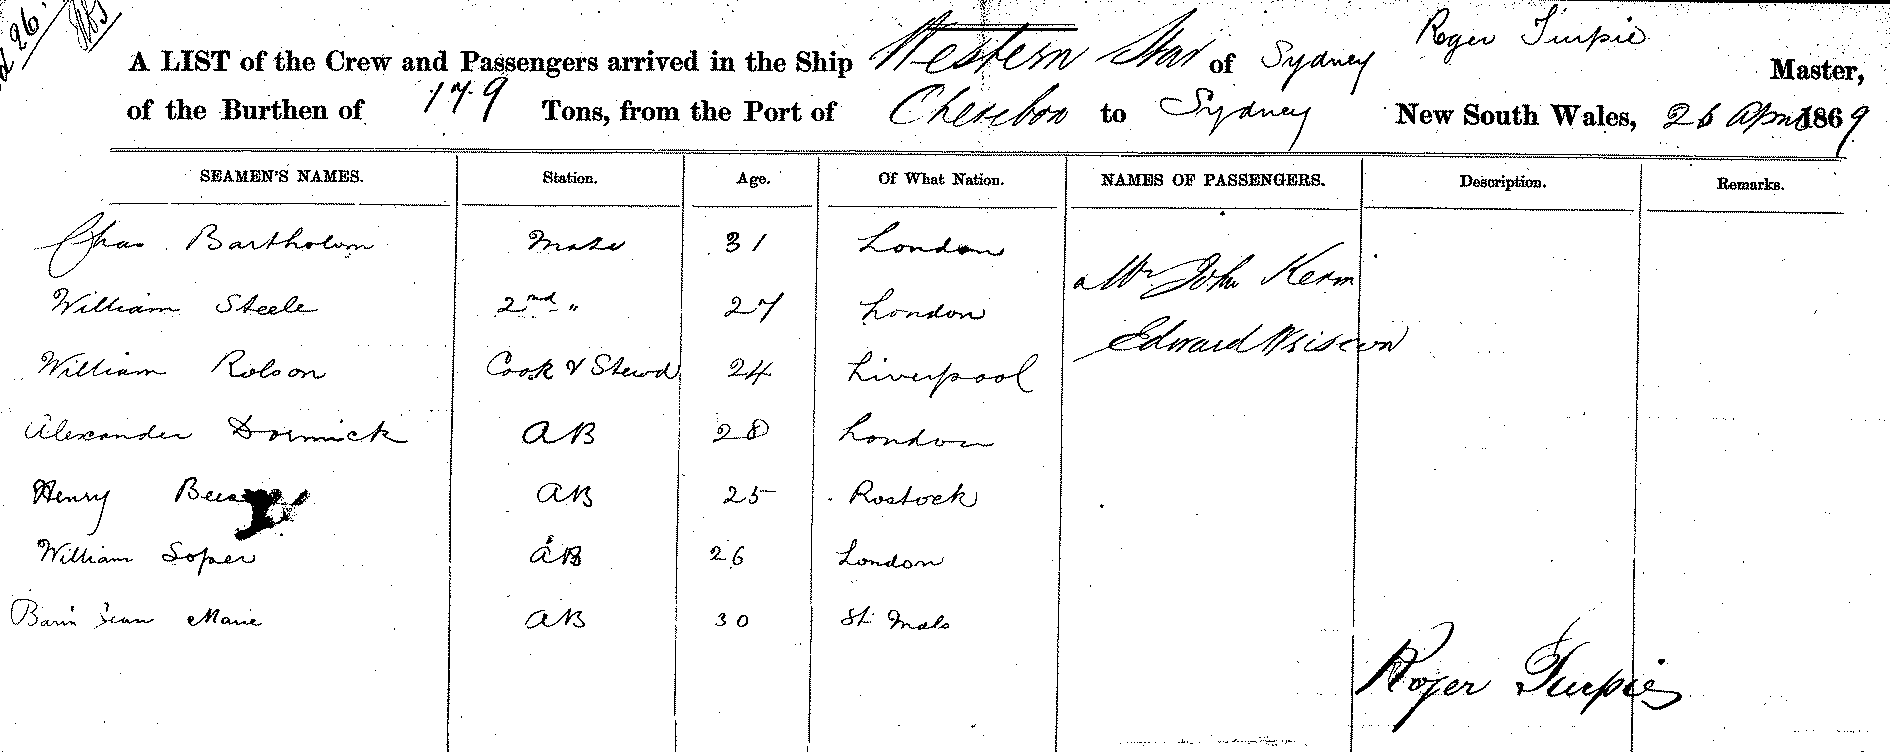 26.
A LIST of the Crew and Passengers arrived in the Ship Western Star of Sydney Roger Turpie Master,
of the Burthen of 179 Tons, from the Port of Cheribon to Sydney New South Wales, 26 April 1869
SEAMEN'S NAMES. Station. Age. Of What Nation. NAMES OF PASSENGERS. Description. Remarks.
Chas Bartholom Mate 31 London
Mr John Kerin
William Steele 2nd " 27 London
Edward
William Robson Cook & Stewd 24 Liverpool
Alexander Dormick AB 28 London
Henry AB 25 Rostock
William Soper AB 26 London
Barin Jean Marie AB 30 St Malo
Roger Turpie